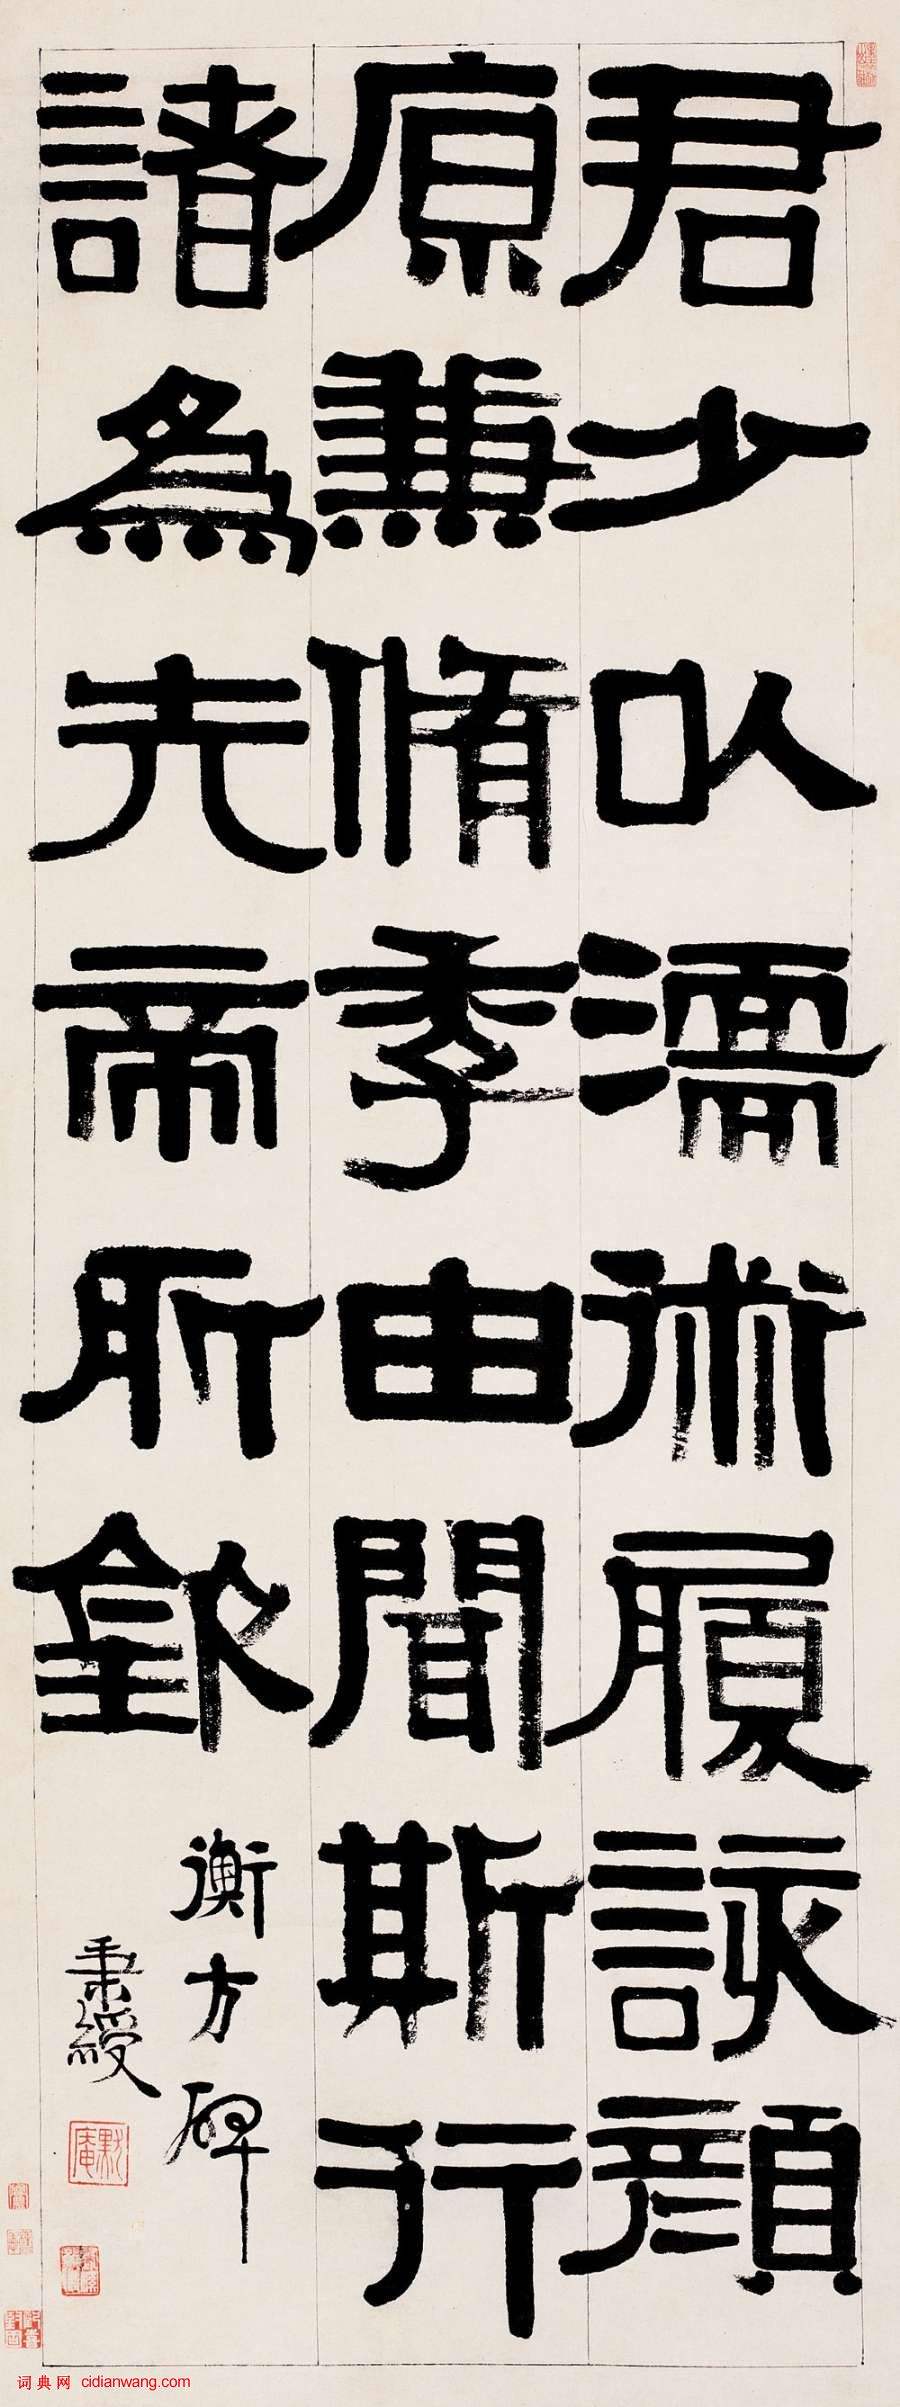 君少以濡術履詠顏
原兼脩季由聞斯行
諸為先帝所欽
衡方碑
秉綬
默庵
词典网 cidianwang.com